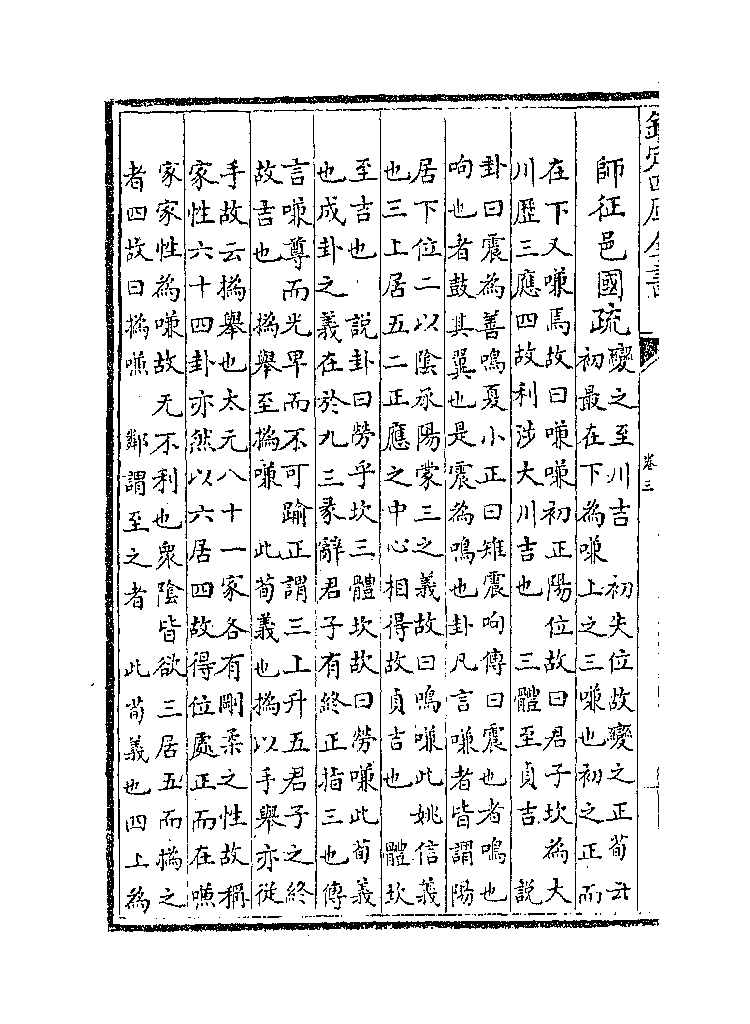 欽定四庫全書 卷三
師征邑國疏變之至川吉 初失位故變之正荀云
初最在下為嗛上之三嗛也初之正而
在下又嗛焉故曰嗛嗛初正陽位故曰君子坎為大
川歷三應四故利涉大川吉也 三體至貞吉 說
卦曰震為善鳴夏小正曰雉震呴傳曰震也者鳴也
呴也者鼓其翼也是震為鳴也卦凡言嗛者皆謂陽
居下位二以陰承陽蒙三之義故曰鳴嗛此姚信義
也三上居五二正應之中心相得故貞吉也 體坎
至吉也 說卦曰勞乎坎三體坎故曰勞嗛此荀義
也成卦之義在於九三彖辭君子有終正指三也傳
言嗛尊而光卑而不可踰正謂三上升五君子之終
故吉也 撝舉至撝嗛 此荀義也撝以手舉亦從
手故云撝舉也太元八十一家各有剛柔之性故稱
家性六十四卦亦然以六居四故得位處正而在嗛
家家性為嗛故无不利也衆陰皆欲三居五而撝之
者四故曰撝嗛 鄰謂至之者 此荀義也四上為